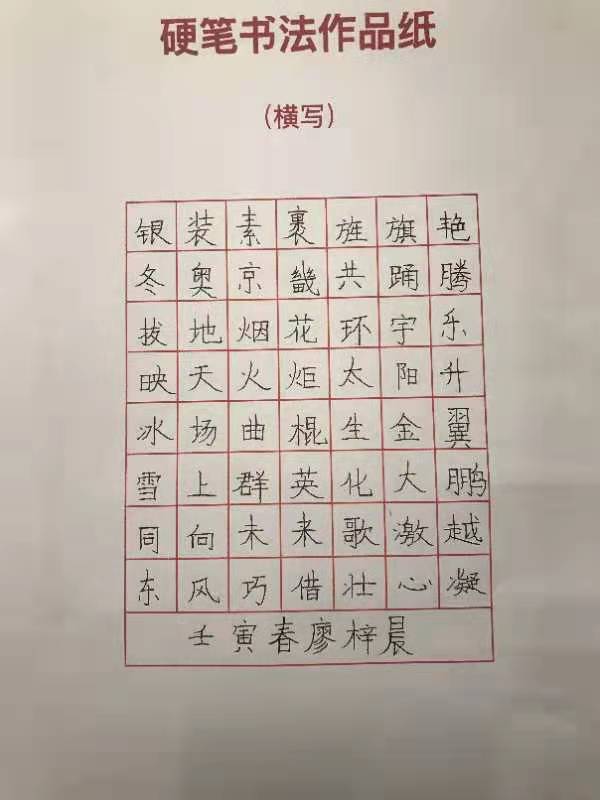 硬笔书法作品纸
（横写）
银装素裹旌旗艳
冬奥京畿共踊腾
拔地烟花环宇乐
映天火炬太阳升
冰场曲棍生金翼
雪上群英化大鹏
同向未来歌激越
东风巧借壮心凝
壬寅春廖梓晨